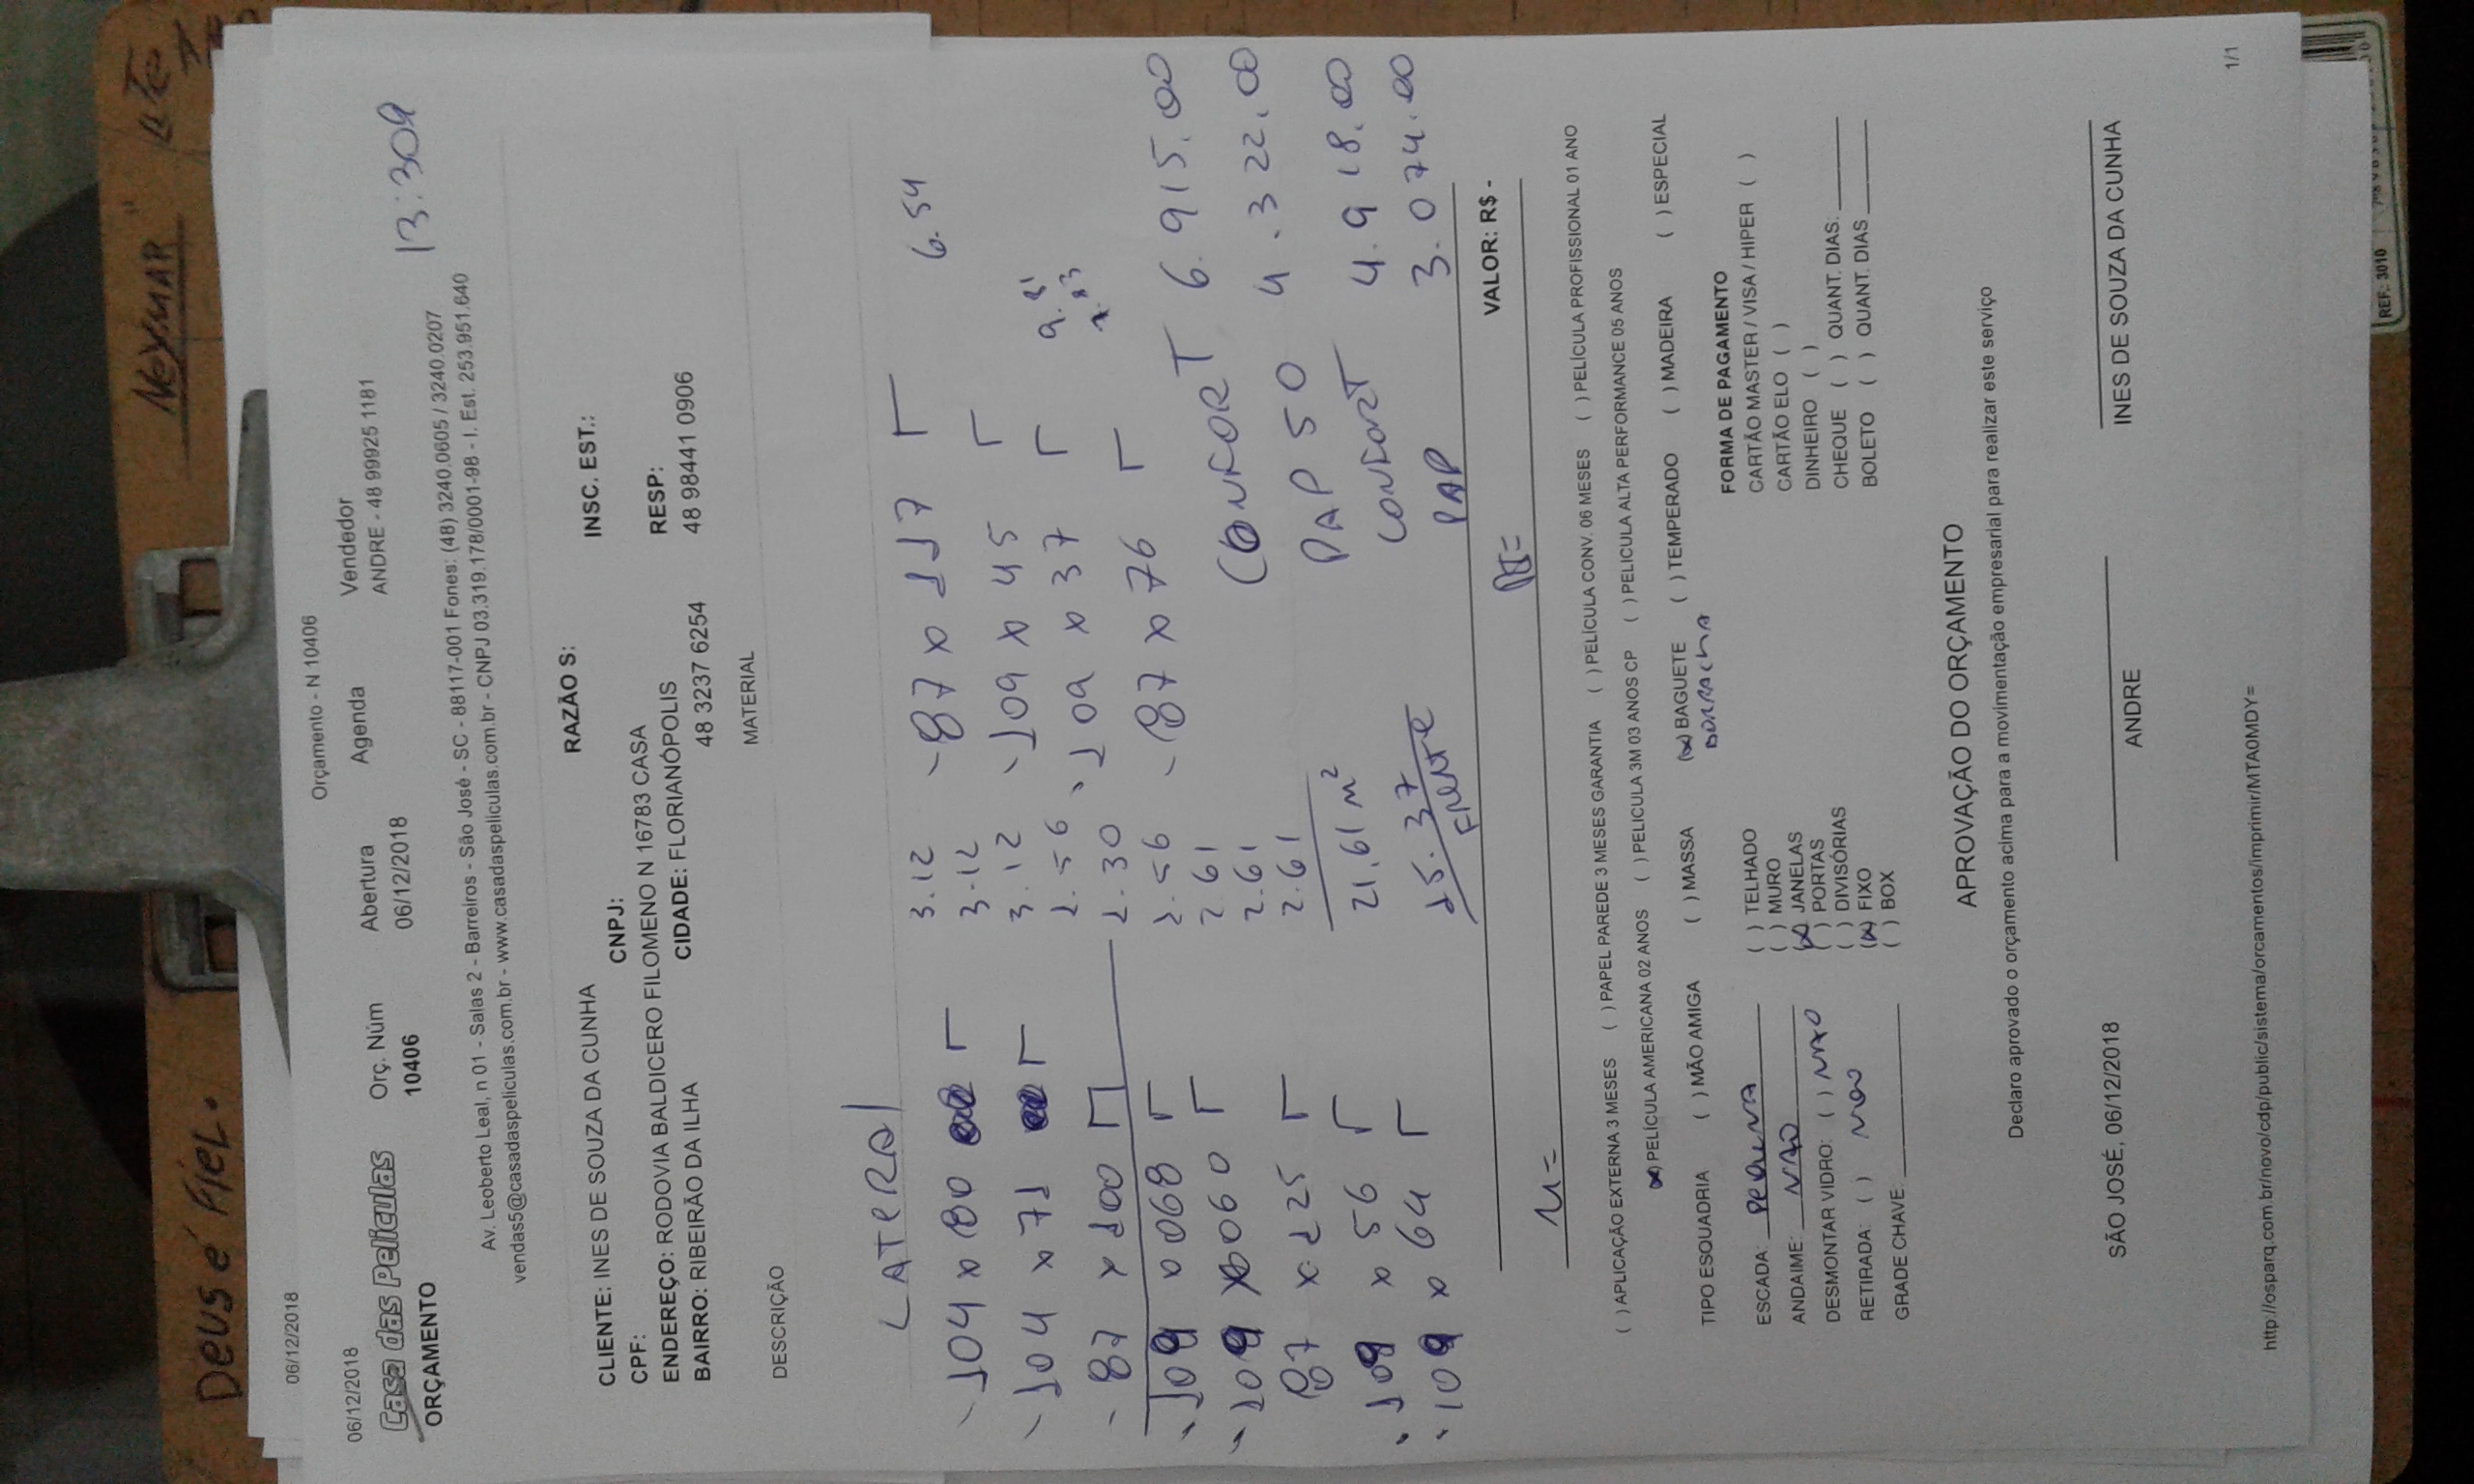 Deus é Fiel.
NEYMAR
06/12/2018
Orçamento - N 10406
06/12/2018
Casa das Películas
ORÇAMENTO
Orç. Núm
10406
Abertura
06/12/2018
Agenda
Vendedor
ANDRE - 48 99925 1181
13:309
Av. Leoberto Leal, n 01 - Salas 2 - Barreiros - São José - SC - 88117-001 Fones: (48) 3240.0605 / 3240.0207
vendas5@casadaspeliculas.com.br - www.casadaspeliculas.com.br - CNPJ 03.319.178/0001-98 - I. Est. 253.951.640
RAZÃO S:
CLIENTE: INES DE SOUZA DA CUNHA
CNPJ:
INSC. EST.:
CPF:
ENDEREÇO: RODOVIA BALDICERO FILOMENO N 16783 CASA
RESP:
BAIRRO: RIBEIRÃO DA ILHA
CIDADE: FLORIANÓPOLIS
48 3237 6254
48 98441 0906
DESCRIÇÃO
MATERIAL
LATERAL
104 x 80
104 x 71
87 x 100
109 x 068
109 x 060
87 x 125
109 x 56
109 x 64
3.12
3.12
3.12
2.56
2.30
2.56
2.61
2.61
2.61
21,61 m²
25.37
Frente
87 x 117
6.54
109 x 45
109 x 37
87 x 76
CONFORT 6.915.00
PAP 50 4.322.00
CONFORT 4.918.00
PAP 3.074.00
VALOR: R$ -
( ) APLICAÇÃO EXTERNA 3 MESES ( ) PAPEL PAREDE 3 MESES GARANTIA ( ) PELÍCULA CONV. 06 MESES ( ) PELÍCULA PROFISSIONAL 01 ANO
(x) PELÍCULA AMERICANA 02 ANOS ( ) PELICULA 3M 03 ANOS CP ( ) PELICULA ALTA PERFORMANCE 05 ANOS
TIPO ESQUADRIA ( ) MÃO AMIGA ( ) MASSA (x) BAGUETE ( ) TEMPERADO ( ) MADEIRA ( ) ESPECIAL
BORRACHA
ESCADA: PEQUENA
ANDAIME: NÃO
DESMONTAR VIDRO: ( ) NÃO
RETIRADA: ( ) NÃO
GRADE CHAVE:
( ) TELHADO
( ) MURO
(x) JANELAS
( ) PORTAS
( ) DIVISÓRIAS
(x) FIXO
( ) BOX
FORMA DE PAGAMENTO
CARTÃO MASTER / VISA / HIPER ( )
CARTÃO ELO ( )
DINHEIRO ( )
CHEQUE ( ) QUANT. DIAS:
BOLETO ( ) QUANT. DIAS
APROVAÇÃO DO ORÇAMENTO
Declaro aprovado o orçamento acima para a movimentação empresarial para realizar este serviço
SÃO JOSÉ, 06/12/2018
ANDRE
INES DE SOUZA DA CUNHA
http://osparq.com.br/novo/cdp/public/sistema/orcamentos/imprimir/MTA0MDY=
1/1
REF: 3010